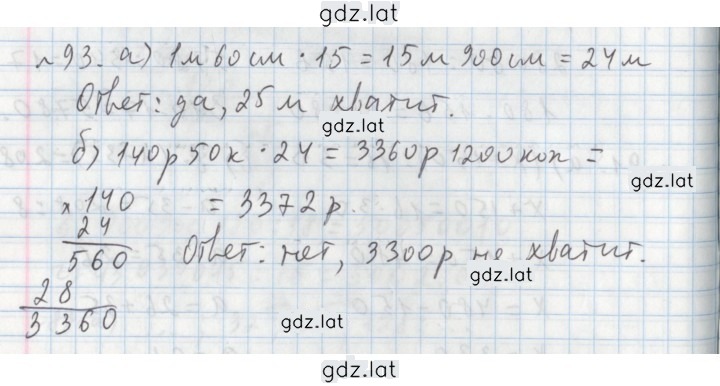 gdz.lat
№93. а) 1м 60см · 15 = 15м 900см = 24м
gdz.lat
Ответ: да, 25 м хватит.
gdz.lat
б) 140р 50к · 24 = 3360р 1200коп =
gdz.lat
= 3372р.
× 140
24
560
28
3360
Ответ: нет, 3300р не хватит.
gdz.lat
gdz.lat
gdz.lat